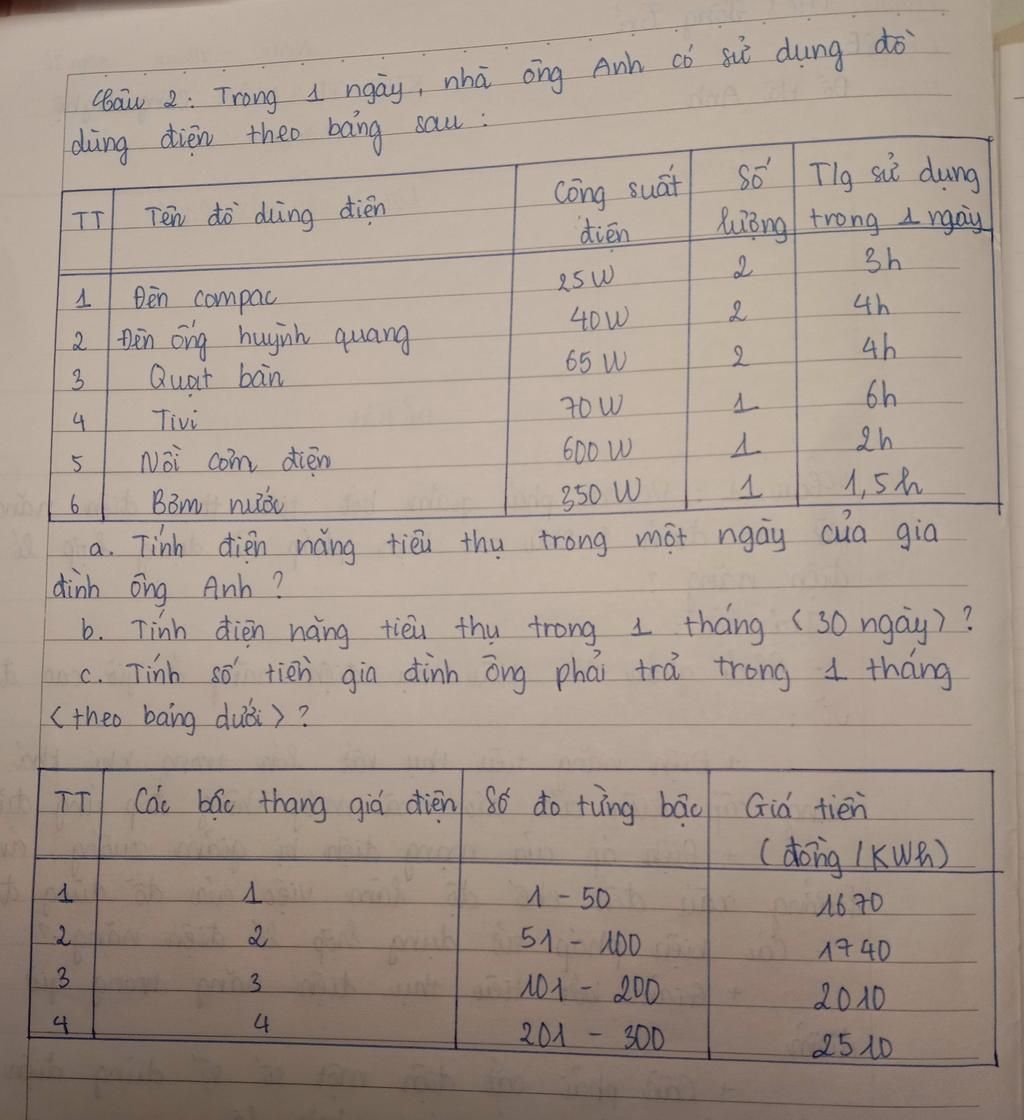 Câu 2: Trong 1 ngày, nhà ông Anh có sử dụng đồ
dùng điện theo bảng sau:
TT Tên đồ dùng điện Công suất điện Số lượng T/g sử dụng trong 1 ngày
1 Đèn compac 25W 2 3h
2 Đèn ống huỳnh quang 40W 2 4h
3 Quạt bàn 65W 2 4h
4 Tivi 70W 1 6h
5 Nồi cơm điện 600W 1 2h
6 Bơm nước 350W 1 1,5h
a. Tính điện năng tiêu thụ trong một ngày của gia
đình ông Anh?
b. Tính điện năng tiêu thụ trong 1 tháng (30 ngày)?
c. Tính số tiền gia đình ông phải trả trong 1 tháng
(theo bảng dưới)?
TT Các bậc thang giá điện Số đo từng bậc Giá tiền
(đồng/KWh)
1 1 1-50 1670
2 2 51-100 1740
3 3 101-200 2010
4 4 201-300 2510